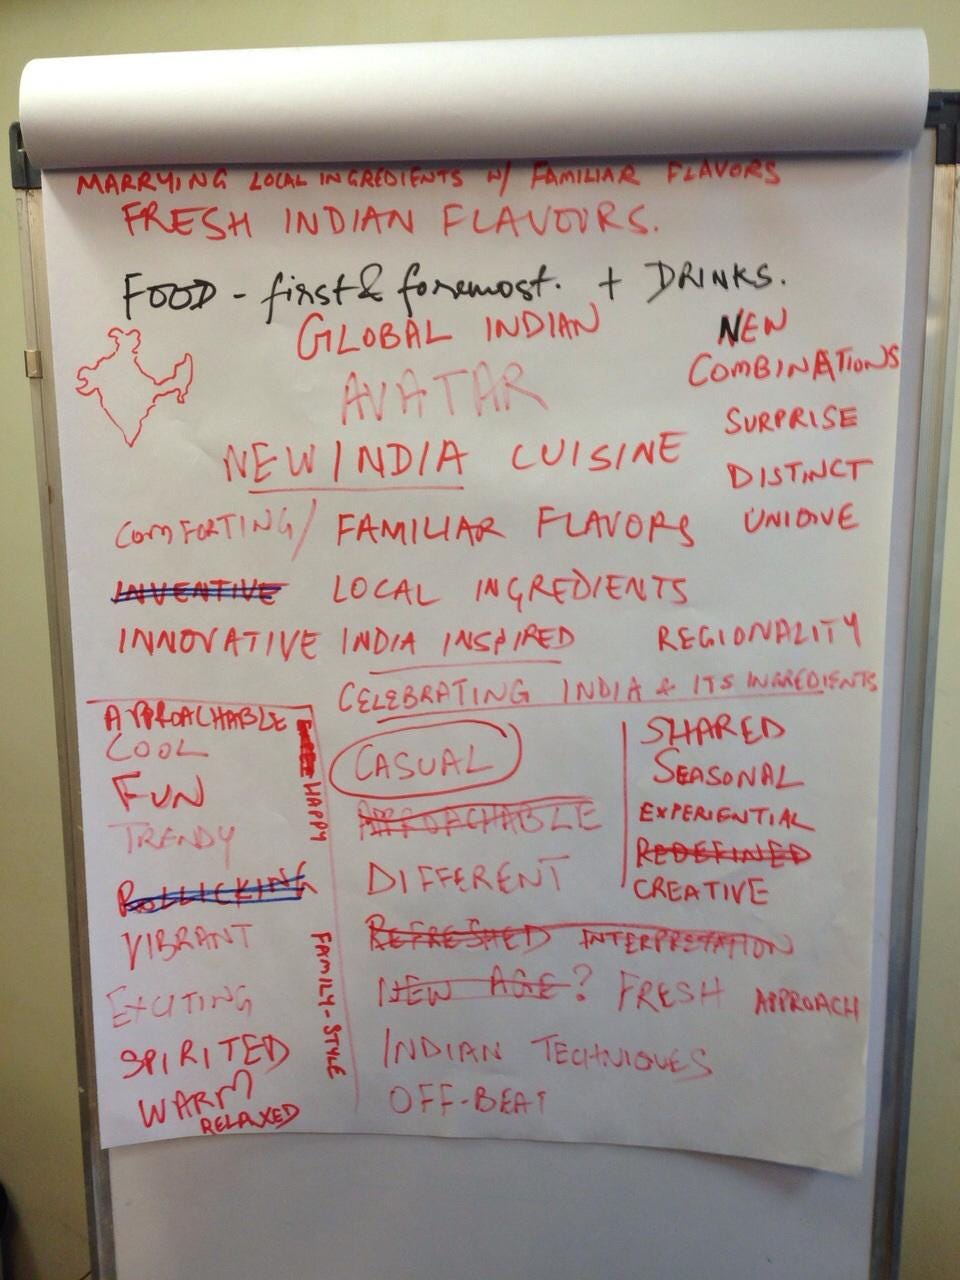 MARRYING LOCAL INGREDIENTS W/ FAMILIAR FLAVORS
FRESH INDIAN FLAVOURS.
FOOD - first & foremost. + DRINKS.
GLOBAL INDIAN
NEW
COMBINATIONS
AVATAR
SURPRISE
NEW INDIA CUISINE
DISTINCT
COMFORTING/ FAMILIAR FLAVORS
UNIQUE
INVENTIVE LOCAL INGREDIENTS
INNOVATIVE INDIA INSPIRED REGIONALITY
CELEBRATING INDIA & ITS INGREDIENTS
APPROACHABLE
COOL
FUN
TRENDY
ROLLICKING
VIBRANT
EXCITING
SPIRITED
WARM
RELAXED
HAPPY
FAMILY-STYLE
CASUAL
APPROACHABLE
DIFFERENT
REFRESHED INTERPRETATION
NEW AGE? FRESH APPROACH
INDIAN TECHNIQUES
OFF-BEAT
SHARED
SEASONAL
EXPERIENTIAL
REDEFINED
CREATIVE